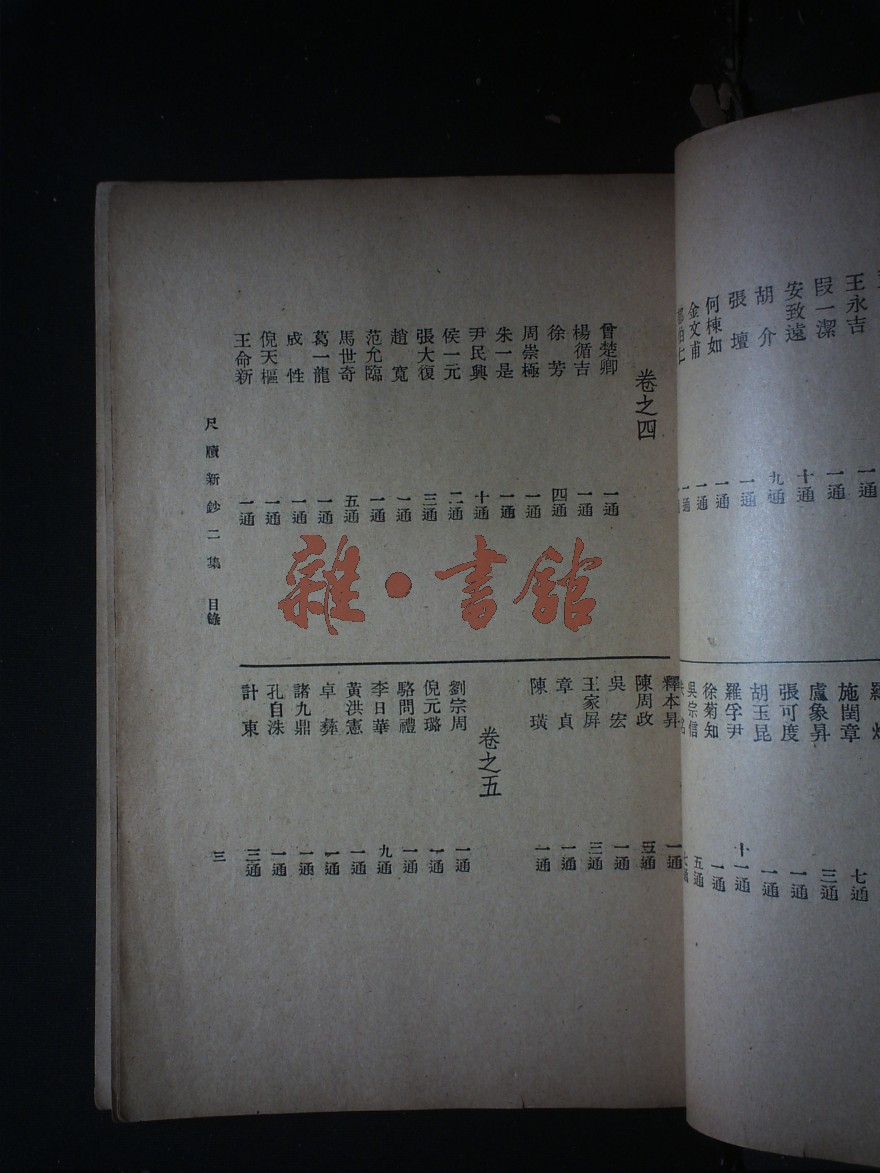 王永吉 一通
段一潔 一通
安致遠 十通
胡介 九通
張壇 一通
何棟如 一通
金文甫 一通
施閏章 七通
盧象昇 三通
張可度 一通
胡玉昆 一通
羅孚尹 十一通
徐菊知 一通
吳宗信 五通
卷之四
曾楚卿 一通
楊循吉 一通
徐芳 四通
周崇極 一通
朱一是 一通
尹民興 十通
侯一元 二通
張大復 三通
趙寬 一通
范允臨 一通
馬世奇 五通
葛一龍 一通
成性 一通
倪天樞 一通
王命新 一通
釋本昇 一通
陳周政 三通
吳宏 一通
王家屏 三通
章貞 一通
陳璜 一通
卷之五
劉宗周 一通
倪元璐 一通
駱問禮 一通
李日華 九通
黃洪憲 一通
卓彝 一通
諸九鼎 一通
孔自洙 一通
計東 三通
尺牘新鈔二集 目錄
三
雜·書館